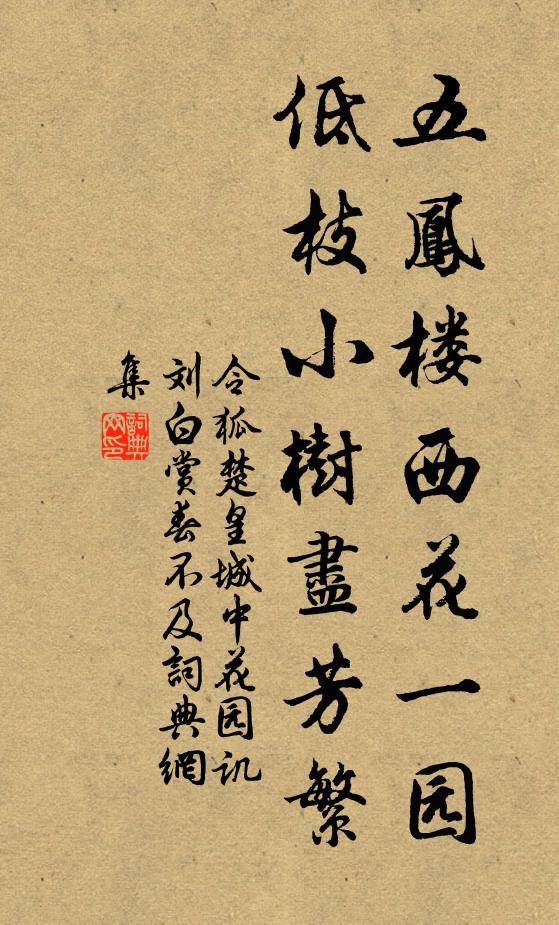 五鳳楼西花一园
低枝小樹盡芳繁
令狐楚皇城中花园讥
刘白赏春不及詞典網
集
詞典
网印